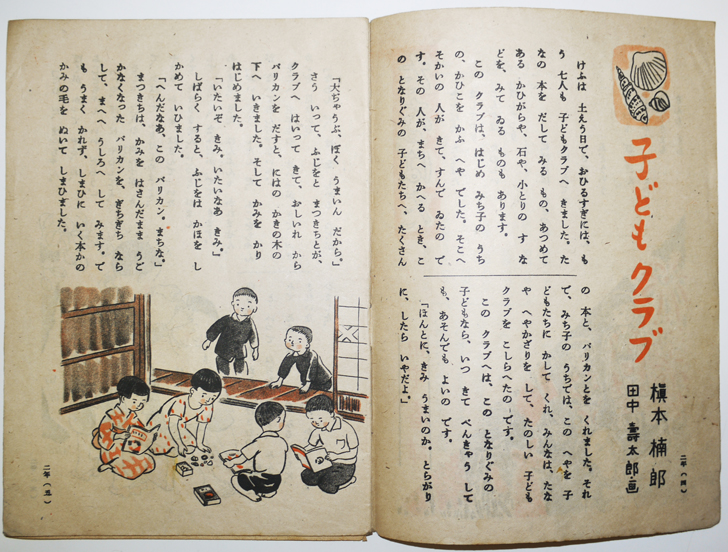 子どもクラブ
槇本楠郎
田中壽太郎画
二年(四)
けふは 土えう日で、おひるすぎには、も
う 七人も 子どもクラブへ きました。た
なの 本を だして みる もの、あつめて
ある かひがらや、石や、小とりの す な
どを、みて ゐる ものも あります。
この クラブは、はじめ みち子の うち
の、かひこを かふ へや でした。そこへ
そかいの 人が きて、すんで ゐたの で
す。その 人が、まちへ かへる とき、こ
の となりぐみの 子どもたちへ たくさん
の 本と、バリカンとを くれました。それ
で、みち子の うちでは、この へやを 子
どもたちに かして くれ、みんなは、たな
や へやかざりを して、たのしい 子ども
クラブを こしらへたの です。
この クラブへは、この となりぐみの
子どもなら、いつ きて べんきゃう して
も、あそんでも よいの です。
「ほんとに、きみ うまいのか。とらがり
に、したら いやだよ。」
「大ぢゃうぶ、ぼく うまいん だから。」
さう いって、ふじをと まつきちとが、
クラブへ はいって きて、おしいれ から
バリカンを だすと、にはの かきの木の
下へ いきました。そして かみを かり
はじめました。
「いたいぞ きみ。いたいなあ きみ。」
しばらく すると、ふじをは かほを し
かめて いひました。
「へんだなあ、この バリカン。まちな。」
まつきちは、かみを はさんだまま うご
かなくなった バリカンを、ぎちぎち なら
して、まへへ うしろへ して みます。で
も うまく かれず、しまひに いく本かの
かみの毛を ぬいて しまひました。
二年(五)